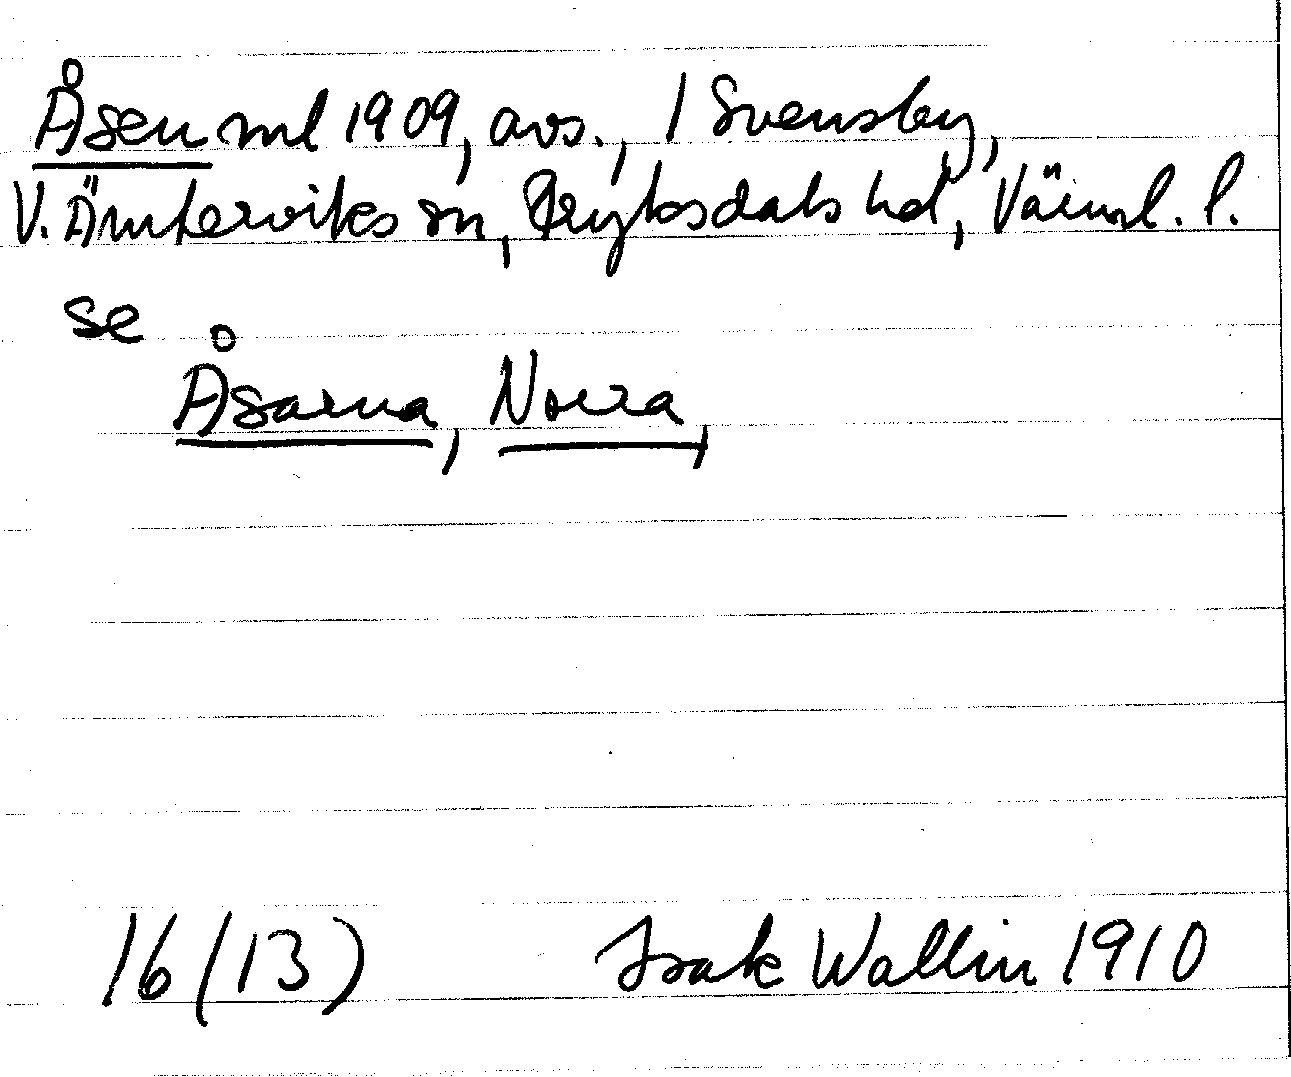 Åsen ml 1909, avs., 1 Svensby,
V. Ämterviks sn, Fryksdals hd, Värml. l.
se
Åsarna, Norra,
16 (13) Isak Wallin 1910